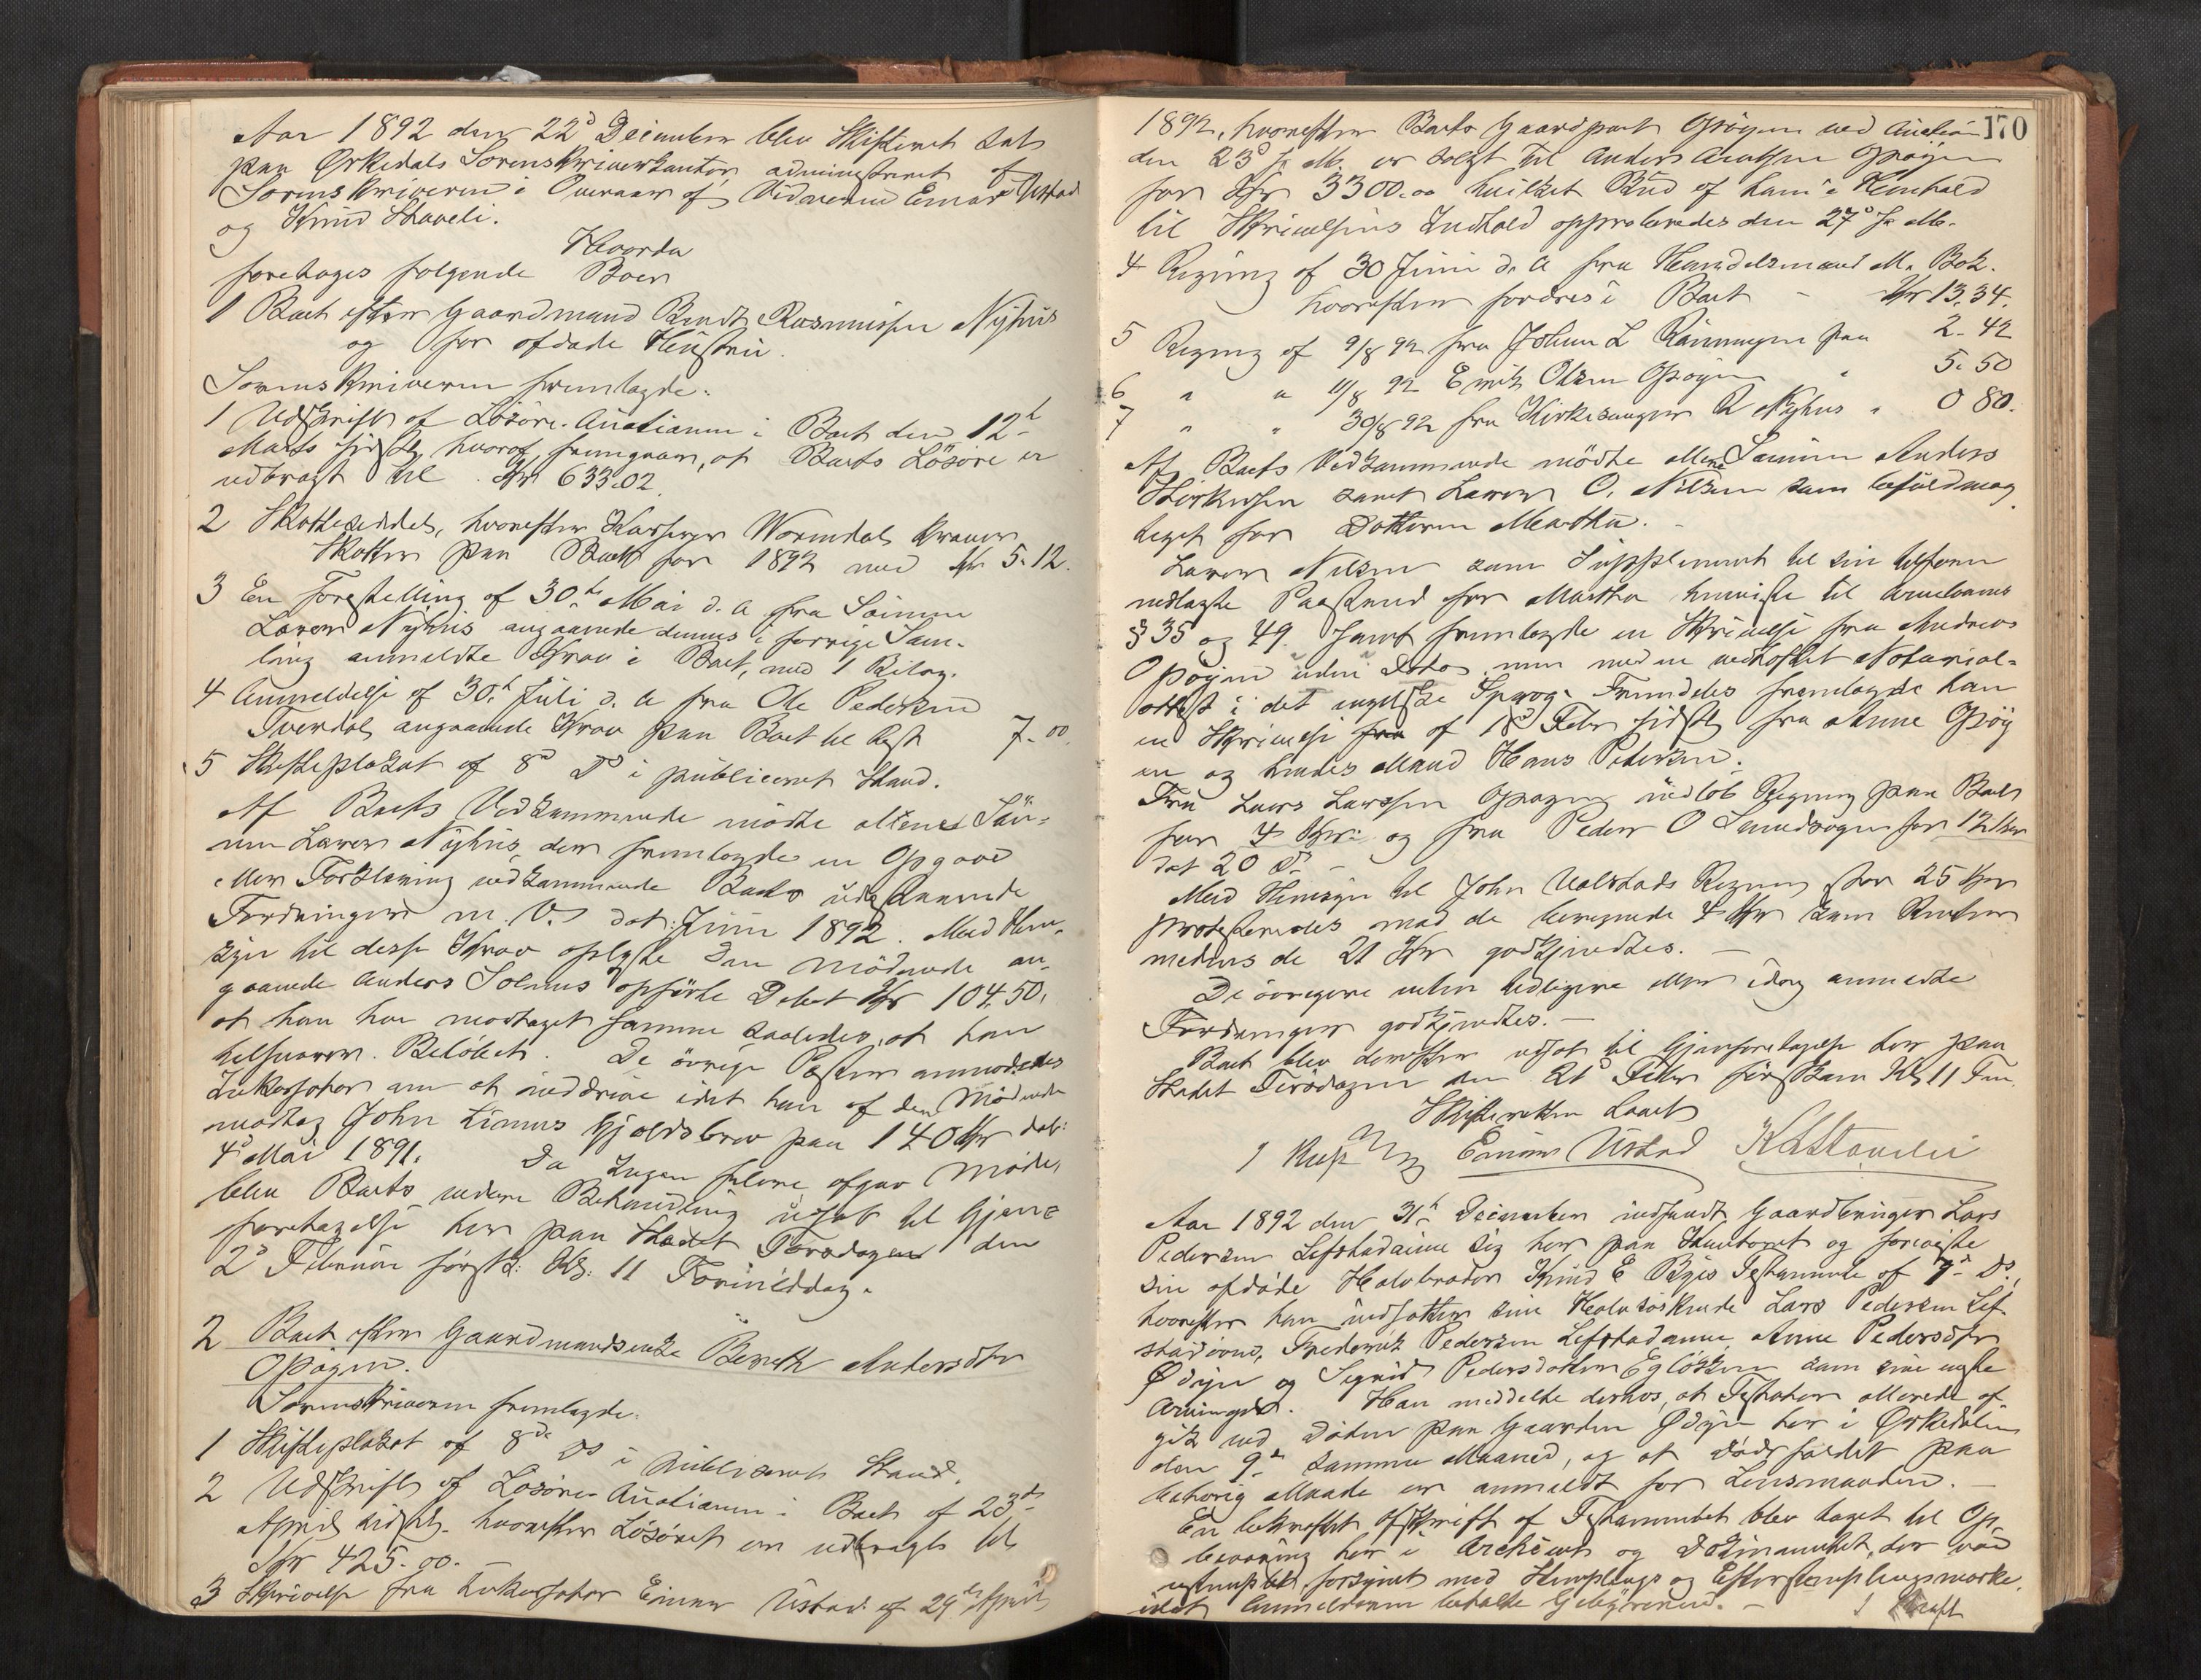 Aar 1892 den 22d December blev Skifteret sat
paa Orkedals Sorenskriverkontor, administreret af
Sorenskriveren i Overvær af Vidnerne Einar Ustad
og Knud Skavli.
Hvorda
foretages følgende Boer
1 Boet efter Gaardmand Bendt Rasmussen Nyhus
og før afdøde Hustru.
Sorenskriveren fremlagde:
1 Udskrift af Løsøre-Auctionen i Boet den 12te
Marts sidstl, hvoraf fremgaar, at Boets Løsøre er
udbragt til Kr 633.02.
2 Skatteseddel, hvorefter Kasserer Wormdal kræver
Skatter paa Boet for 1892 med Kr 5.12.
3 En Forestilling af 30te Mai d. A fra Sønnen
Lavon Nyhus angaaende dennes i forrige Sam-
ling anmeldte Krav i Boet, med 1 Bilag.
4 Anmeldelse af 30te Juli d. A fra Ole Pedersen
Sverdal angaaende Krav paa Boet til Rest 7.00.
5 Skifteplakat af 8d Ds i publiceret Stand.
Af Boets Vedkommende mødte allene Søn-
nen Laven Nyhus, der fremlagde en Opgave
eller Forklaring vedkommende Boets udestaaende
Fordringer m. V. dat: Juni 1892. Med Hen-
syn til disse Krav oplyste den Mødende an-
gaaende Anders Solems opførte Debet Kr 104.50,
at han har modtaget samme saaledes, at han
tilsvarer Beløbet. De øvrige Poster anmodedes
Inkassator om at inddrive idet han af den Mødende
modtog John Limus Gjældsbrev paa 140 Kr dat:
4d Mai 1891. Da Ingen flere afgav Møde,
blev Boets videre Behandling udsat til Gjen-
foretagelse her paa Stedet Torsdagen den
2d Februar førstk: Kl: 11 Formiddag.
2 Boet efter Gaardmandsenke Bereth Andersdtr
Opøyen.
Sorenskriveren fremlagde:
1 Skifteplakat af 8de Ds i publiceret Stand.
2 Udskrift af Løsøre-Auctionen i Boet af 23de
April sidstl. hvorefter Løsøret er udbragt til
Kr 425.00.
3 Skrivelse fra Inkassator Einar Ustad af 29de April
170
1892, hvorefter Boets Gaardpart Opøyen ved Auction
den 23d s. M. er solgt til Anders Arntsen Opøyen
for Kr 3300.00 hvilket Bud af ham i Henhold
til Skrivelsens Indhold approberedes den 27d s. M.
4 Regning af 30 Juni d. A fra Handelsmand M. Bok.
hvorefter fordres i Boet - Kr 13.34.
5 Regning af 9/8 92 fra Johan L Rønningen paa 2.42
6 " " 11/8 92 Erik Olsen Opøyen " 5.50
7 " " 30/8 92 fra Kirkesanger R Nyhus " 0 80.
Af Boets Vedkommende mødte allene Sønnen Anders
samt Laven O. Nilsen som befuldmæg
tiget for Datteren Martha.
Laven Nilsen som Supplement til sin tilforn
nedlagte Paastand for Martha henviste til Arvelovens
§ 35 og 49 samt fremlagde en Skrivelse fra Andreas
Opøyen uden Dato, men med en vedhæftet Notarial-
attest i det engelske Sprog. Fremdeles fremlagde han
en Skrivelse fra af 18d Febr sidstl fra Anne Opøy
en og hendes Mand Hans Pedersen.
Fra Lars Larssen Opøyen indløb Regning paa Boet
for 4 Kr: og fra Peder O for 12 Kr
dat 20 Ds. -
Med Hensyn til John Ualstads Regning stor 25 Kr
protesteredes mod de beregnede 4 Kr som Renter
medens de 21 Kr godkjendtes. -
De øvrige enten tidligere eller idag anmeldte
Fordringer godkjendtes. -
Boet blev derefter udsat til Gjenforetagelse her paa
Stedet Tirsdagen den 21d Febr førstkom Kl 11 Fm.
Skifteretten hævet
Einar Ustad K Skavlie
Aar 1892 den 31te December indfandt Gaardbruger Lars
Pedersen Lefstadaune sig her paa Kontoret og foreviste
sin afdøde Halvbroder Knud E Byes Testamente af 7de Ds,
hvorefter han indsætter sine Halvsøskende Lars Pedersen Lef
stadaune, Frederik Pedersen Lefstadaune, Anne Pedersdtr
Ødyen og Sigrid Pedersdatter Egløsken som sine eneste
Arvinger. Han meddelte derhos, at Testator allerede af
gik ved Døden paa Gaarden Ødyen her i Orkedalen
den 9de samme Maaned, og at Dødsfaldet paa
behørig Maade er anmeldt for Lensmanden. -
En bekræftet Afskrift af Testamentet blev taget til Op
bevaring her i Archivet og Dokumentet, der var
ustemplet, forsynet med Stemplings og Efterstemplingsmærke,
idet Anmelderen betalte Gebyrerne. -